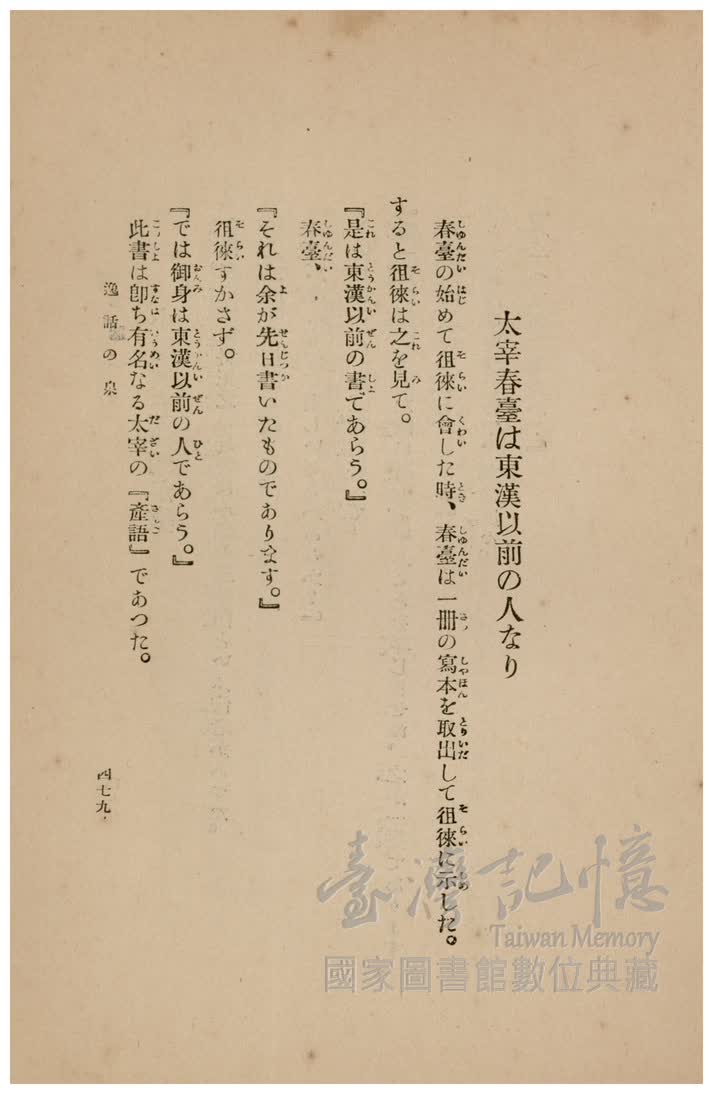 太宰春臺は東漢以前の人なり
春臺の始めて徂徠に會した時、春臺は一冊の寫本を取出して徂徠に示した。
すると徂徠は之を見て。
『是は東漢以前の書であらう。』
春臺、
『それは余が先日書いたものであります。』
徂徠すかさず。
『では御身は東漢以前の人であらう。』
此書は卽ち有名なる太宰の『產語』であつた。
逸話の泉
四七九
臺灣記憶
Taiwan Memory
國家圖書館數位典藏